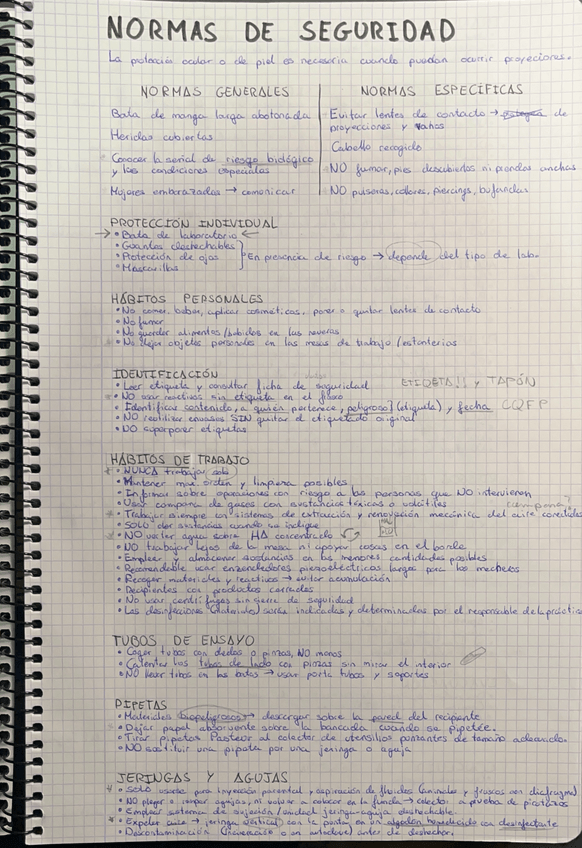 NORMAS DE SEGURIDAD
La protección ocular o de piel es necesaria cuando puedan ocurrir proyecciones.
NORMAS GENERALES
Bata de manga larga abotonada
Heridas cubiertas
Conocer la señal de riesgo biológico
y las condiciones especiales
Mujeres embarazadas → comunicar
NORMAS ESPECÍFICAS
Evitar lentes de contacto →
proyecciones y vahos
Cabello recogido
NO fumar, pies descubiertos ni prendas anchas
NO pulseras, collares, piercings, bufandas
PROTECCIÓN INDIVIDUAL
→ • Bata de laboratorio ←
• Guantes desechables
• Protección de ojos } En presencia de riesgo → depende del tipo de lab.
• Mascarillas
HÁBITOS PERSONALES
• No comer, beber, aplicar cosméticos, poner o quitar lentes de contacto
• No fumar
• No guardar alimentos/bebidas en las neveras
• No dejar objetos personales en las mesas de trabajo/estanterías
IDENTIFICACIÓN
• Leer etiqueta y consultar ficha de seguridad
ETIQETA!! y TAPÓN
• NO usar reactivos sin etiqueta en el frasco
• Identificar contenido, a quién pertenece, peligroso? (etiqueta) y fecha CQFP
• NO reutilizar envases SIN quitar el etiquetado original
• NO superponer etiquetas
HÁBITOS DE TRABAJO
• NUNCA trabajar solo
• Mantener max. orden y limpieza posibles
• Informar sobre operaciones con riesgo a las personas que NO intervienen
• Usar campana de gases con sustancias tóxicas o volátiles
• Trabajar siempre con sistemas de extracción y renovación mecánica del aire conectados
• SOLO oler sustancias cuando se indique
• NO verter agua sobre HA concentrado
• NO trabajar lejos de la mesa ni apoyar cosas en el borde
• Emplear y almacenar sustancias en las menores cantidades posibles
• Recomendable usar encendedores piezoeléctricos largos para los mecheros
• Recoger materiales y reactivos → evitar acumulación
• Recipientes con productos cerrados
• No usar centrífugas sin cierre de seguridad
• Las desinfecciones (materiales) serán indicadas y determinadas por el responsable de la práctica
TUBOS DE ENSAYO
• Coger tubos con dedos o pinzas, NO manos
• Calentar los tubos de lado con pinzas sin mirar el interior
• NO llevar tubos en las batas → usar porta tubos y soportes
PIPETAS
• Materiales biopeligrosos → descargar sobre la pared del recipiente
• Dejar papel absorvente sobre la bancada cuando se pipetée.
• Tirar pipetas Pasteur al colector de utensilios punzantes de tamaño adecuado.
• NO sustituir una pipeta por una jeringa o aguja
JERINGAS Y AGUJAS
• SOLO usarse para inyección parental y aspiración de fluidos (animales y frascos con diafragma)
• NO plegar o romper agujas, ni volver a colocar en la funda → colector a prueba de picotazos
• Emplear sistema de sujeción/unidad jeringa-aguja deshechable.
• Expeler aire → jeringa vertical con la punta en un algodón humedecido con desinfectante
• Descontaminación en autoclave) antes de deshechar.